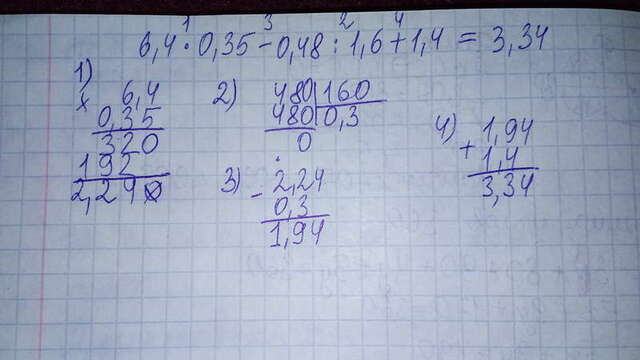 1 3 2 4
6,4 · 0,35 - 0,48 : 1,6 + 1,4 = 3,34
1)
× 6,4
0,35
320
192
2,240
2) 480 160
480 0,3
0
3) - 2,24
0,3
1,94
4) + 1,94
1,4
3,34